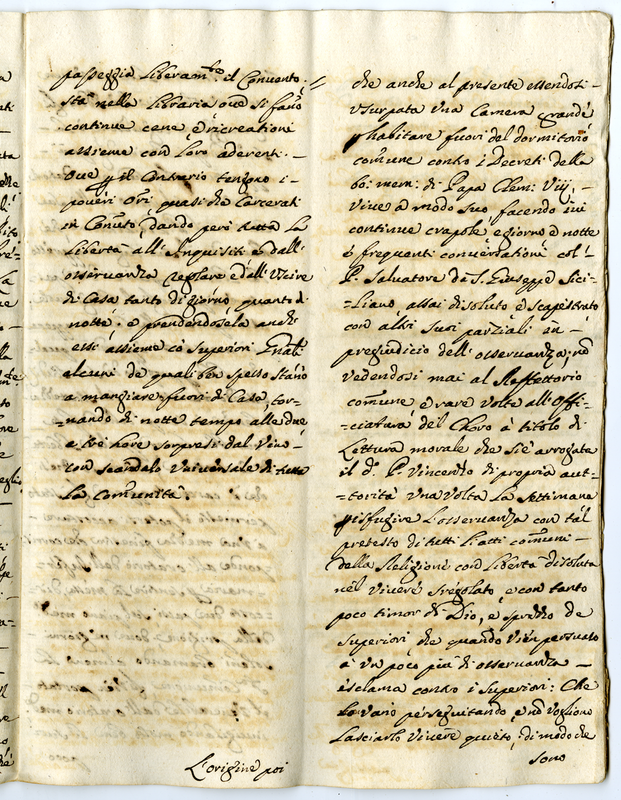 passeggia liberam.te il Convento.
stà nella libraria oue si fano
continue cene, e ricreationi
assieme con loro aderenti. —
Oue p il contrario tengono i -
poueri Ori quasi che carcerati
in Conuto, dando però tutta la
libertà all'Inquisiti e dall'
osseruanza regolare e dall'Vscire
di Casa tanto di giorno, quanto di
notte. e prendendosela anche
essi assieme cò Superiori Gnali
alcuni de quali ben spesso stano
a mangiare fuori di Casa, tor-
-nando di notte tempo alle due
a tre hore sorpresi dal Vino
con scandalo Vniuersale di tutta
la comunità.
L'origine poi
che anche al presente essendosi -
vsurpata vna Camera grande
p habitare fuori del dormitorio
comune contro i Decreti della
bo: mem: di Papa Clem: Viij, -
Viue a modo suo facendo iui
continue crapole e giorno e notte
e frequenti conuersationi col -
P. Saluatore da S. Giuseppe Sici-
-liano assai disoluto e scapestrato
con altri suoi partiali in -
pregiudicio dell'osseruanza, nò
vedendosi mai al Reffettorio
comune e rare volte all'Offi-
-ciatura del Choro à titolo di
Lettura morale che si è arrogata
il d.o P. Vincenzo di propria aut-
-torità vna volta la settimana
p isfugire l'osseruanza con tal
pretesto di tutti l'atti comuni -
della Religione con libertà disoluta
nel viuere sregolato, e con tanto
poco timor di Dio, e sprezzo de
Superiori che quando vien persuaso
à vn poco più di osseruanza —
esclama contro i Superiori: Che
lo vano perseguitando, e nò vogliono
lasciarlo viuere quieto, di modo che
sono